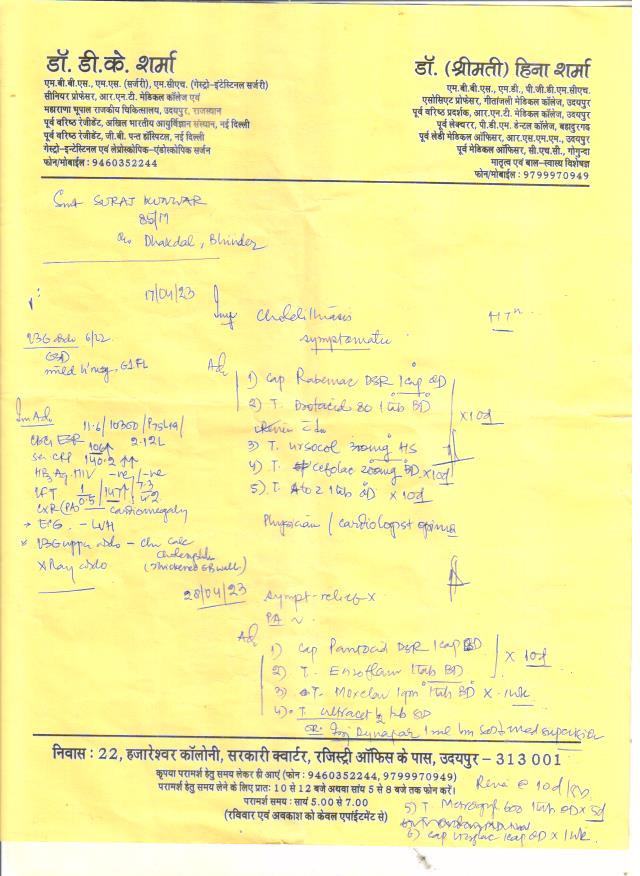 डॉ. डी.के. शर्मा
एम.बी.बी.एस., एम.एस. (सर्जरी), एम.सीएच. (गेस्ट्रो-इंटेस्टिनल सर्जरी)
सीनियर प्रोफेसर, आर.एन.टी. मेडिकल कॉलेज एवं
महाराणा भूपाल राजकीय चिकित्सालय, उदयपुर, राजस्थान
पूर्व वरिष्ठ रेजीडेंट, अखिल भारतीय आयुर्विज्ञान संस्थान, नई दिल्ली
पूर्व वरिष्ठ रेजीडेंट, जी.बी. पन्त हॉस्पिटल, नई दिल्ली
गेस्ट्रो-इन्टेस्टिनल एवं लेप्रोस्कोपिक-एंडोस्कोपिक सर्जन
फोन/मोबाईल : 9460352244
डॉ. (श्रीमती) हिना शर्मा
एम.बी.बी.एस., एम.डी., पी.जी.डी.एम.सीएच.
एसोसिएट प्रोफेसर, गीतांजली मेडिकल कॉलेज, उदयपुर
पूर्व वरिष्ठ प्रदर्शक, आर.एन.टी. मेडिकल कॉलेज, उदयपुर
पूर्व लेक्चरर, पी.डी.एम. डेन्टल कॉलेज, बहादुरगढ़
पूर्व लेडी मेडिकल ऑफिसर, आर.एस.एम.एम., उदयपुर
पूर्व मेडिकल ऑफिसर, सी.एच.सी., गोगुन्दा
मातृत्व एवं बाल-स्वास्थ्य विशेषज्ञ
फोन/मोबाईल : 9799970949
Smt SURAJ KUNWAR
85/M
R/o Dhakdal, Bhinder
17/04/23
Imp Cholelithiasis
symptomatic
HTn
USG abdo 6/22
GBD
mild h'meg, G1 FL
Adv
1) Cap Rabemac DSR 1cap OD
2) T. Drotacid 80 1tab BD
x10d
3) T. Ursocol 300mg HS
4) T. cefolac 200mg BD x10d
5) T. AtoZ 1tab OD x10d
Physician / cardiologist opinion
11.6/10300/
CBC ESR 2.12L
106↑
Ser CRP 140.2 ↑↑
HBsAg HIV -ve/-ve
LFT 1/0.5 147↑ 7.3/4.2
CXR (PA) cardiomegaly
→ ECG. - LVH
* USG upper abdo - Chr Calc
(Thickened GB wall)
X Ray abdo
28/04/23
sympt-relief x
PA ~
Adv
1) Cap Pantocid DSR 1cap BD
2) T. Enzoflam 1tab BD
x 10d
3) T. Moxclav 1gm 1tab BD x 1wk
4) T. Ultracet ½ tab SD
or Inj Dynapar 1ml Im SOS med supervision
निवास : 22, हजारेश्वर कॉलोनी, सरकारी क्वार्टर, रजिस्ट्री ऑफिस के पास, उदयपुर – 313 001
कृपया परामर्श हेतु समय लेकर ही आएं (फोन : 9460352244, 9799970949)
परामर्श हेतु समय लेने के लिए प्रातः 10 से 12 बजे अथवा सांय 5 से 8 बजे तक फोन करें।
परामर्श समय : सायं 5.00 से 7.00
(रविवार एवं अवकाश को केवल एपाईंटमेंट से)
5) T. Metrogyl 600 1tab OD x 5d
6) Cap 1cap OD x 1wk.